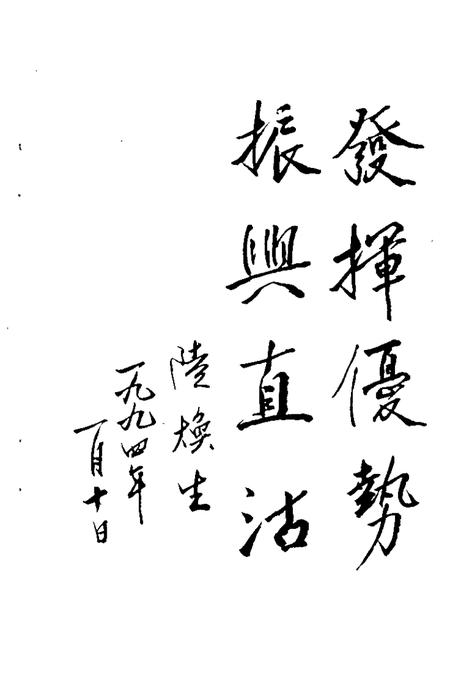 發揮優勢
振興直沽
陸煥生
一九九四年
一月十日